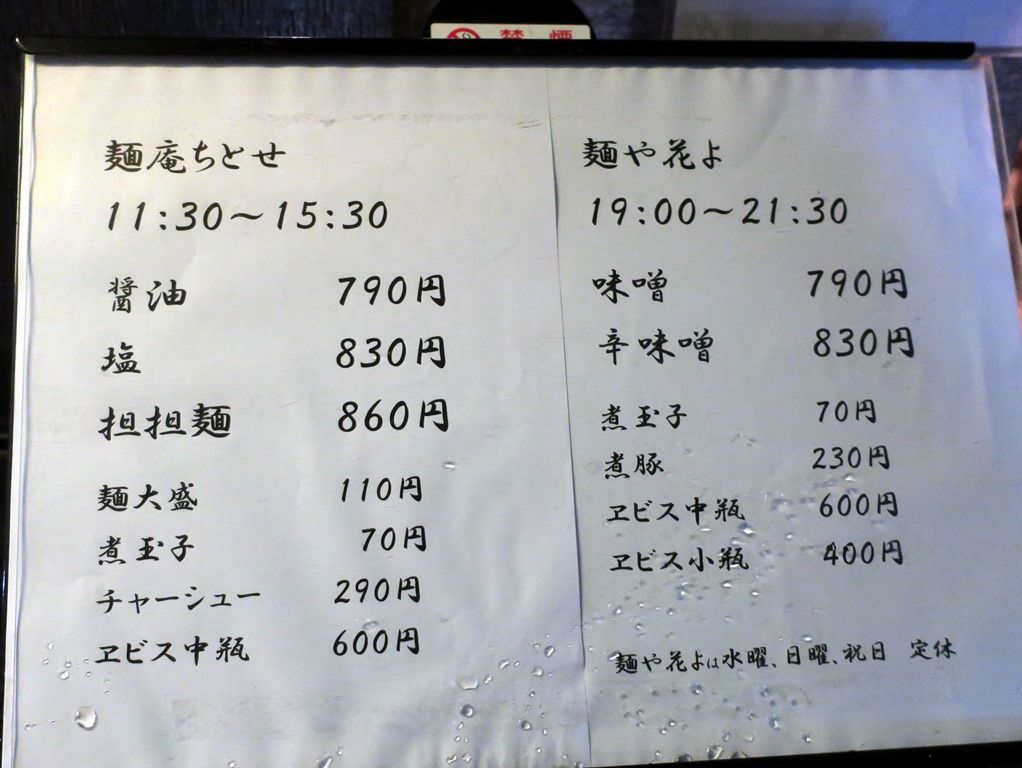 禁煙
麺庵ちとせ
11:30〜15:30
醤油 790円
塩 830円
担担麺 860円
麺大盛 110円
煮玉子 70円
チャーシュー 290円
ヱビス中瓶 600円
麺や花よ
19:00〜21:30
味噌 790円
辛味噌 830円
煮玉子 70円
煮豚 230円
ヱビス中瓶 600円
ヱビス小瓶 400円
麺や花よは水曜、日曜、祝日 定休